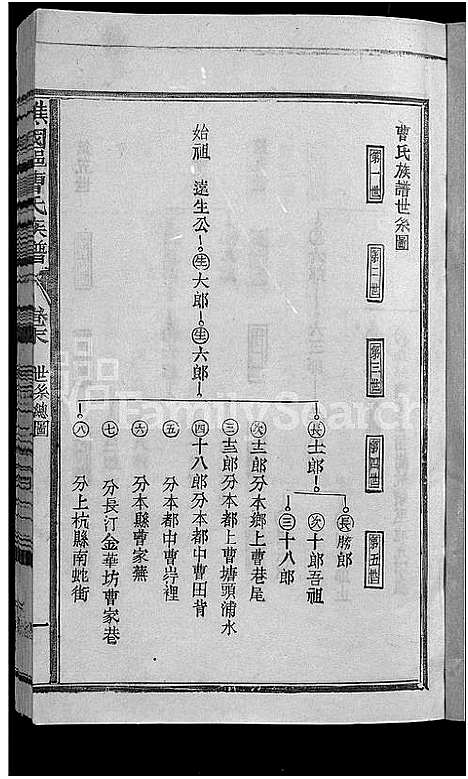 曹氏族譜世系圖
第一世
第二世
第三世
第四世
第五世
始祖 遠生公
生 大郎
生 六郎
長 士郎
長 勝郎
次 十郎吾祖
三 十八郎
次 士郎分本鄉上曹巷尾
三 三郎分本都上曹塘頭浦水
四 十八郎分本都中曹田背
五 分本都中曹坑裡
六 分本縣曹家
七 分長汀金華坊曹家巷
八 分上杭縣南蛇街
譙國曹氏族譜
世系總圖
一
FamilySearch